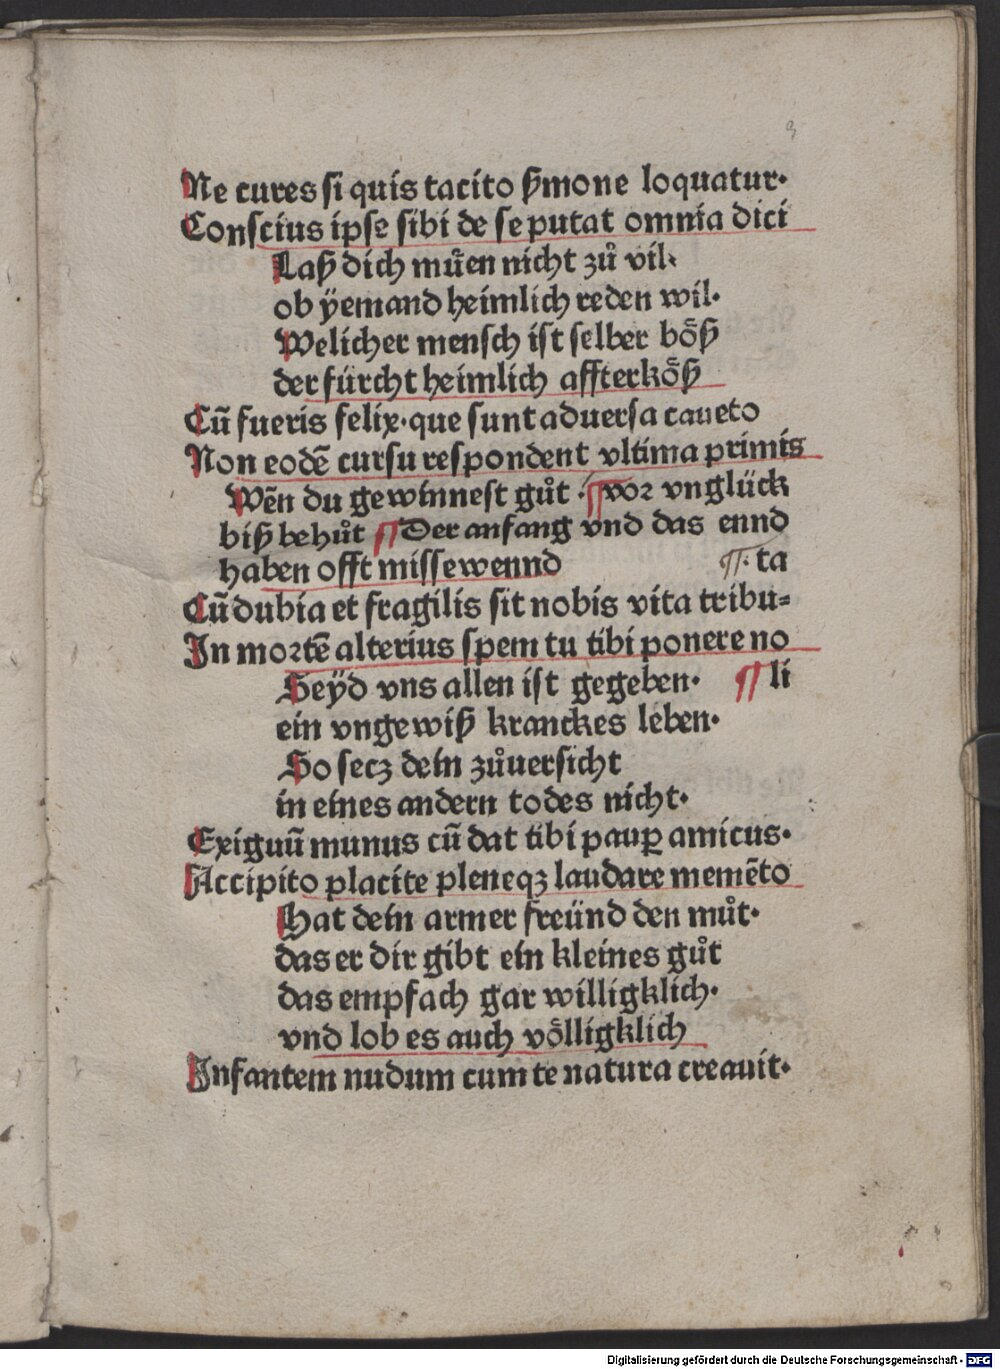 9
Ne cures si quis tacito ꝑmone loquatur·
Conscius ipse sibi de se putat omnia dici
Laß dich mu̇en nicht zů vil·
ob ÿemand heimlich reden wil·
Welicher mensch ist selber bo̊ß
der fürcht heimlich affterko̊ß
Cū fueris felix·que sunt aduersa caueto
Non eodē cursu respondent vltima primis
Wēn du gewinnest gůt · ¶ vor vnglück
biß behůt ¶ Der anfang vnd das ennd
haben offt missewennd ¶· ta
Cū dubia et fragilis sit nobis vita tribu⸗
In mortē alterius spem tu tibi ponere no
Seÿd vns allen ist gegeben· ¶ li
ein vngewiß kranckes leben·
So secz dein zůuersicht
in eines andern todes nicht·
Exiguū munus cū dat tibi pauꝑ amicus·
Accipito placite pleneqꝫ laudare memēto
Hat dein armer freünd den můt·
das er dir gibt ein kleines gůt
das empfach gar willigklich·
vnd lob es auch vo̊lligklich
Infantem nudum cum te natura creauit·
Digitalisierung gefördert durch die Deutsche Forschungsgemeinschaft - DFG